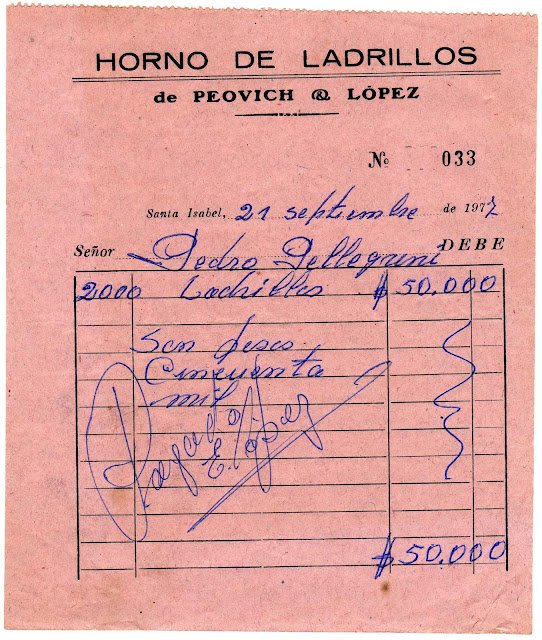 HORNO DE LADRILLOS
de PEOVICH & LÓPEZ
Nº 033
Santa Isabel, 21 septiembre de 1977
Señor Pedro Pellegrini DEBE
2000 Ladrillos $ 50.000
Son pesos
Cincuenta
mil
Pagado
E. López
$ 50.000